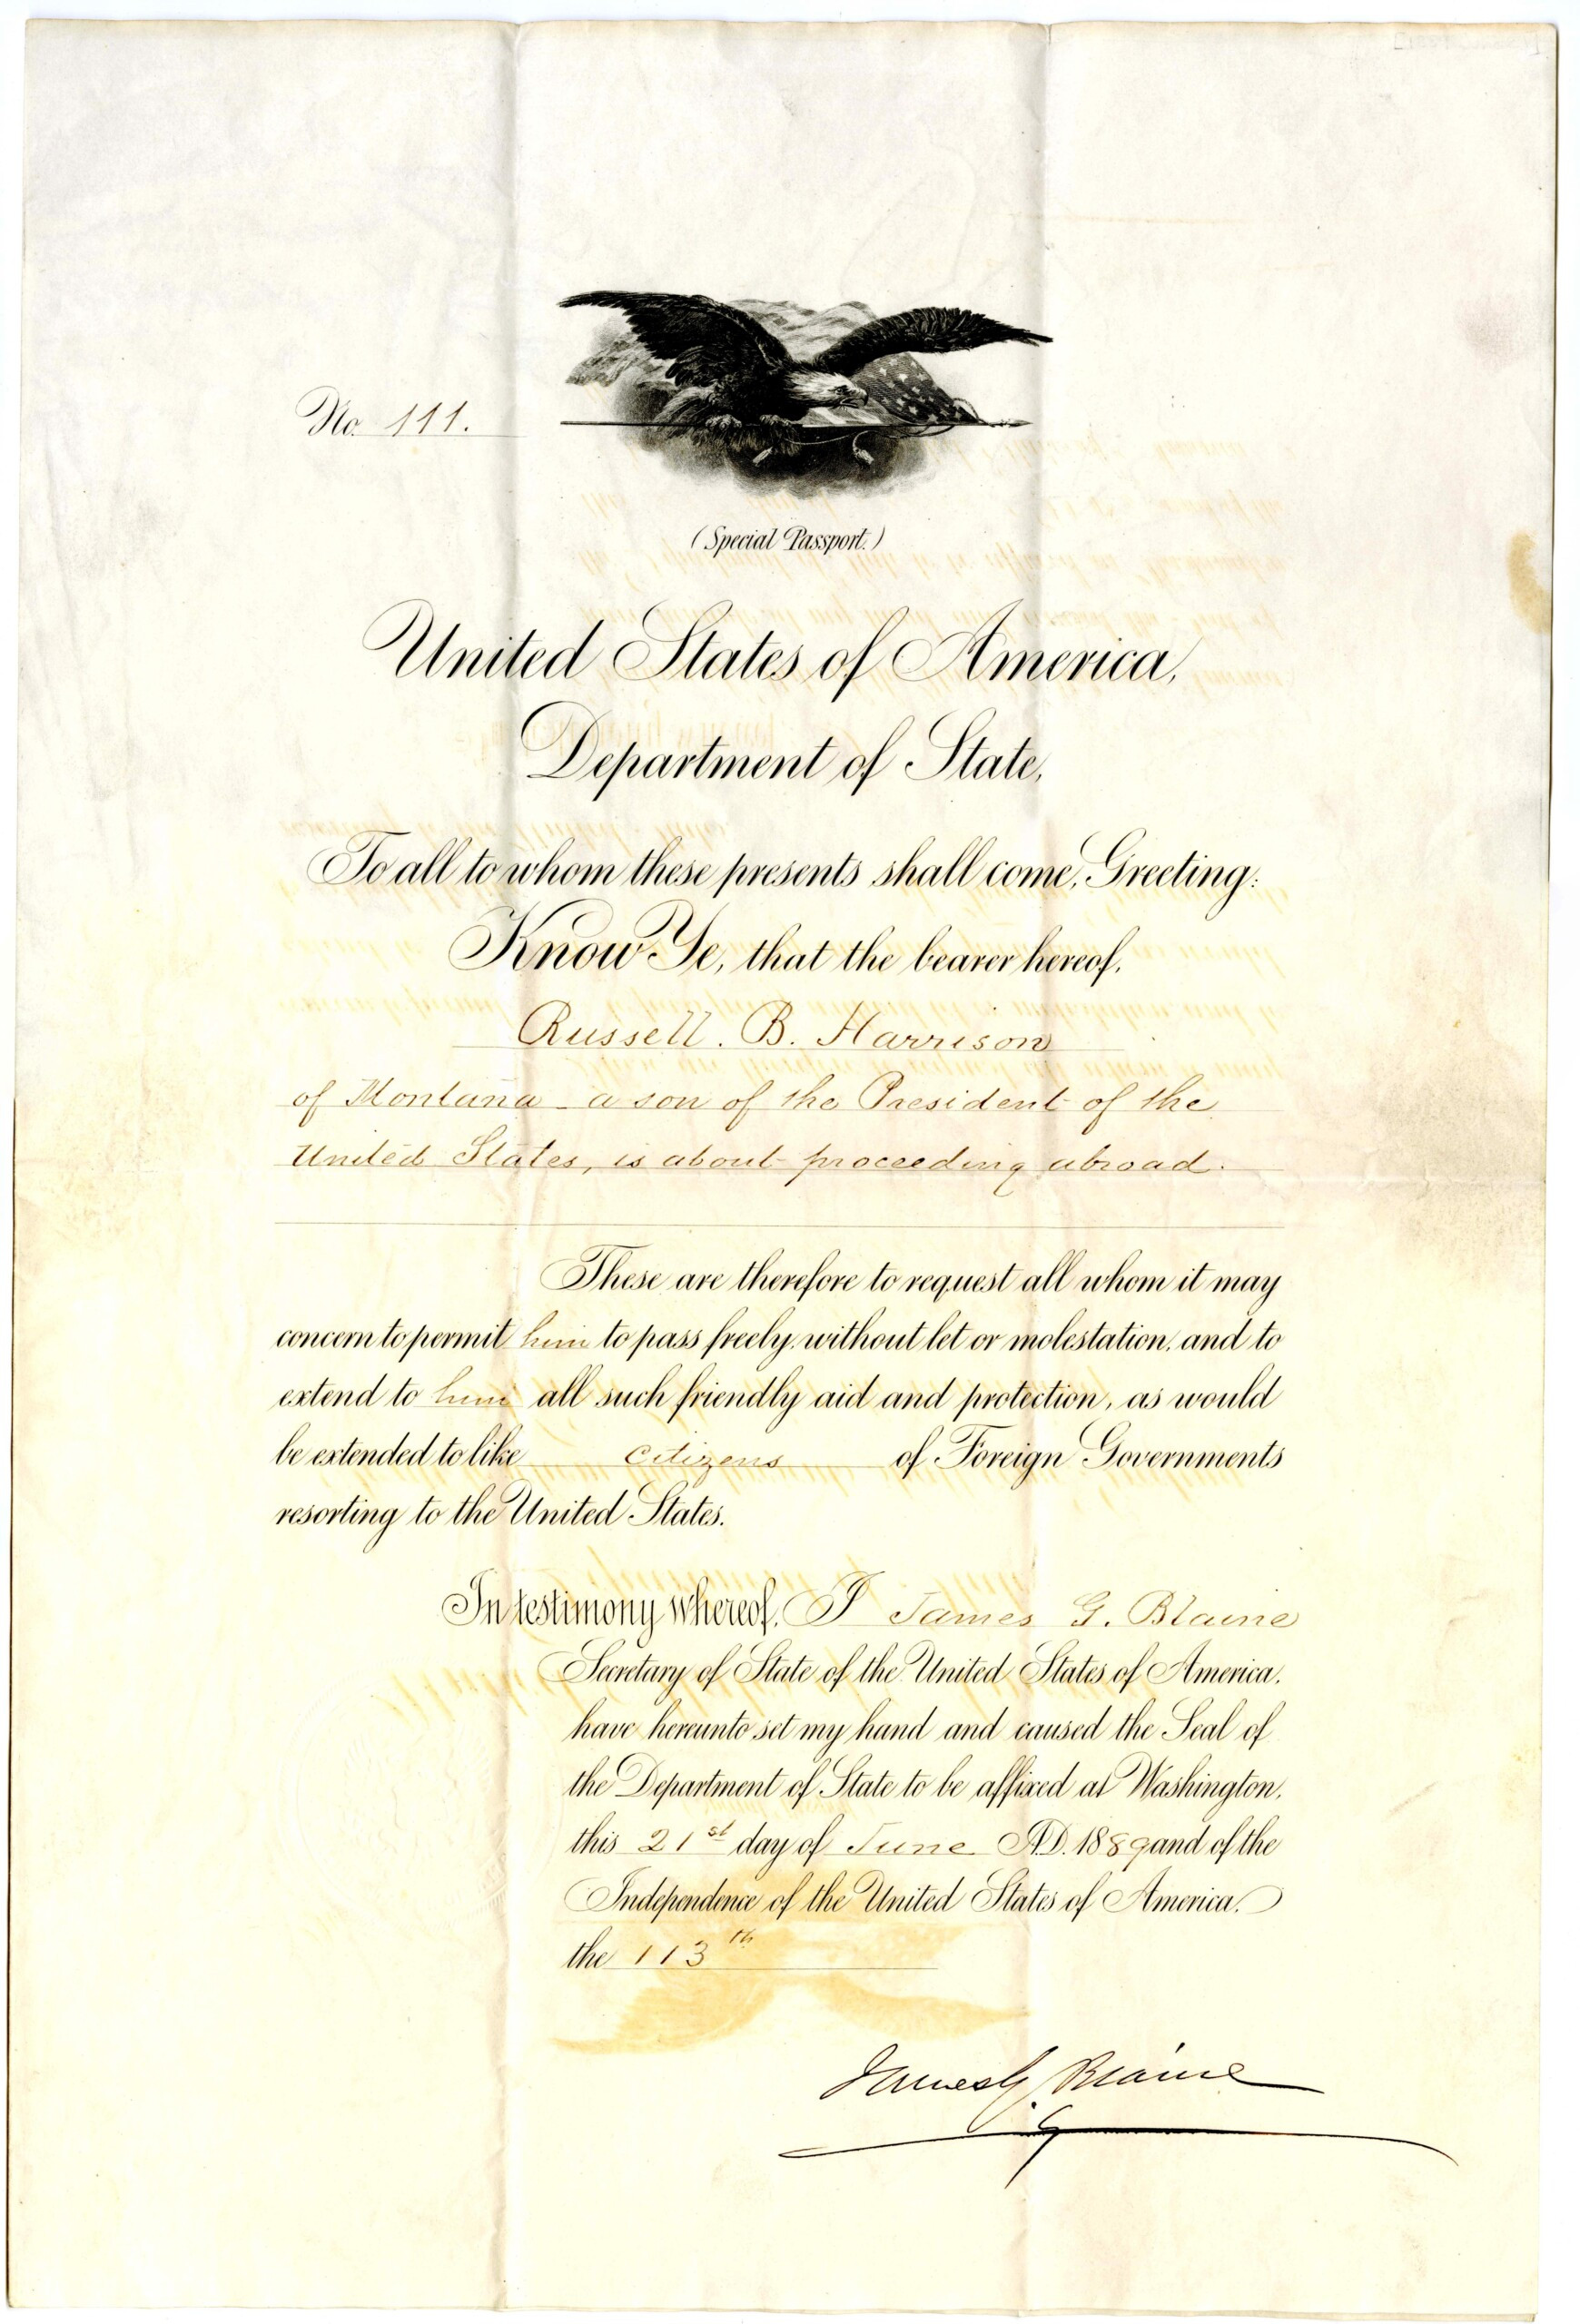 No. 111.
(Special Passport.)
United States of America,
Department of State,
To all to whom these presents shall come, Greeting:
Know Ye, that the bearer hereof,
Russell. B. Harrison
of Montana - a son of the President of the
United States, is about proceeding abroad.
These are therefore to request all whom it may
concern to permit him to pass freely, without let or molestation, and to
extend to him all such friendly aid and protection, as would
be extended to like citizens of Foreign Governments
resorting to the United States.
In testimony whereof, I James G. Blaine
Secretary of State of the United States of America,
have hereunto set my hand and caused the Seal of
the Department of State to be affixed at Washington,
this 21st day of June A.D. 1889 and of the
Independence of the United States of America,
the 113th
James G. Blaine